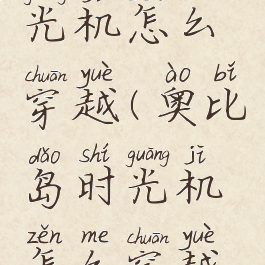 光机怎么
chuān yuè ào bǐ
穿越(奥比
dǎo shí guāng jī
岛时光机
zěn me chuān yuè
怎么穿越